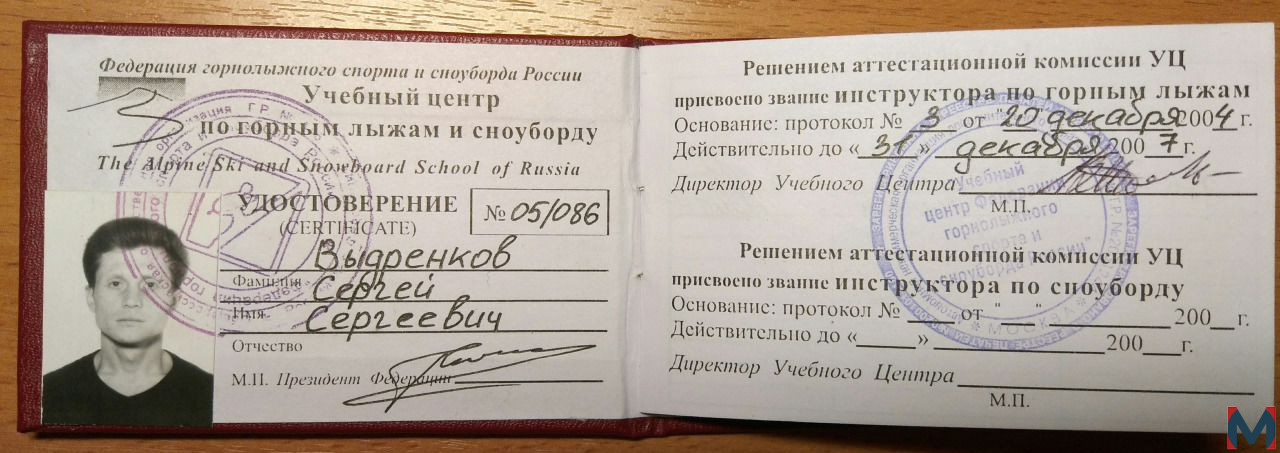 Федерация горнолыжного спорта и сноуборда России
Учебный центр
по горным лыжам и сноуборду
The Alpine Ski and Snowboard School of Russia
УДОСТОВЕРЕНИЕ
(CERTIFICATE)
№ 05/086
Выдренков
Фамилия
Сергей
Имя
Сергеевич
Отчество
М.П. Президент Федерации
Решением аттестационной комиссии УЦ
присвоено звание инструктора по горным лыжам
Основание: протокол № 3 от "20" декабря 2004 г.
Действительно до «31» декабря 2007 г.
Директор Учебного Центра
М.П.
Учебный
центр Федерации
горнолыжного
спорта и
сноуборда России"
МОСКВА
Решением аттестационной комиссии УЦ
присвоено звание инструктора по сноуборду
Основание: протокол № от " " 200 г.
Действительно до « » 200 г.
Директор Учебного Центра
М.П.
M